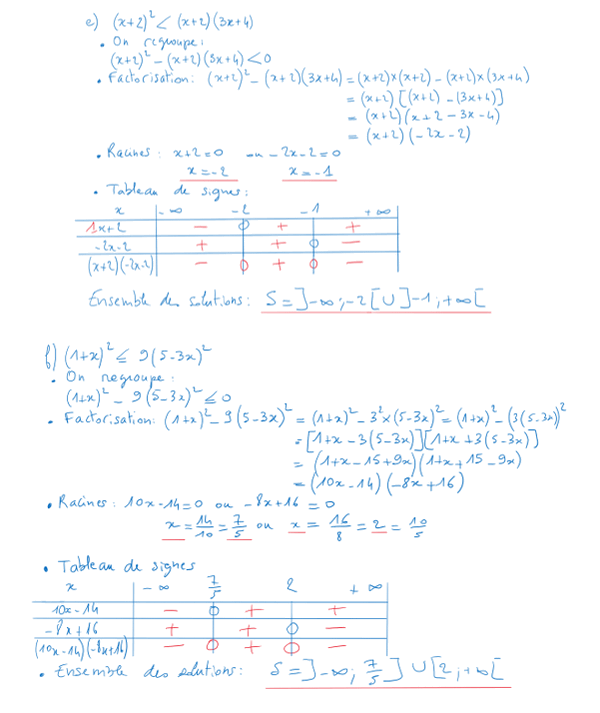 e) (x+2)² < (x+2)(3x+4)
• On regroupe :
(x+2)² - (x+2)(3x+4) < 0
• Factorisation : (x+2)² - (x+2)(3x+4) = (x+2)×(x+2) - (x+2)×(3x+4)
= (x+2) [(x+2) - (3x+4)]
= (x+2) (x+2 - 3x - 4)
= (x+2) (-2x - 2)
• Racines : x+2 = 0 ou -2x-2 = 0
x = -2 x = -1
• Tableau de signes :
x -∞ -2 -1 +∞
1x+2 - 0 + +
-2x-2 + + 0 -
(x+2)(-2x-2) - 0 + 0 -
Ensemble des solutions : S = ]-∞ ; -2[ ∪ ]-1 ; +∞[
f) (1+x)² ≤ 9(5-3x)²
• On regroupe :
(1+x)² - 9(5-3x)² ≤ 0
• Factorisation : (1+x)² - 9(5-3x)² = (1+x)² - 3²×(5-3x)² = (1+x)² - (3(5-3x))²
= [1+x - 3(5-3x)][1+x + 3(5-3x)]
= (1+x - 15 + 9x)(1+x + 15 - 9x)
= (10x - 14)(-8x + 16)
• Racines : 10x - 14 = 0 ou -8x + 16 = 0
x = 14/10 = 7/5 ou x = 16/8 = 2 = 10/5
• Tableau de signes
x -∞ 7/5 2 +∞
10x - 14 - 0 + +
-8x + 16 + + 0 -
(10x-14)(-8x+16) - 0 + 0 -
• Ensemble des solutions : S = ]-∞ ; 7/5] ∪ [2 ; +∞[